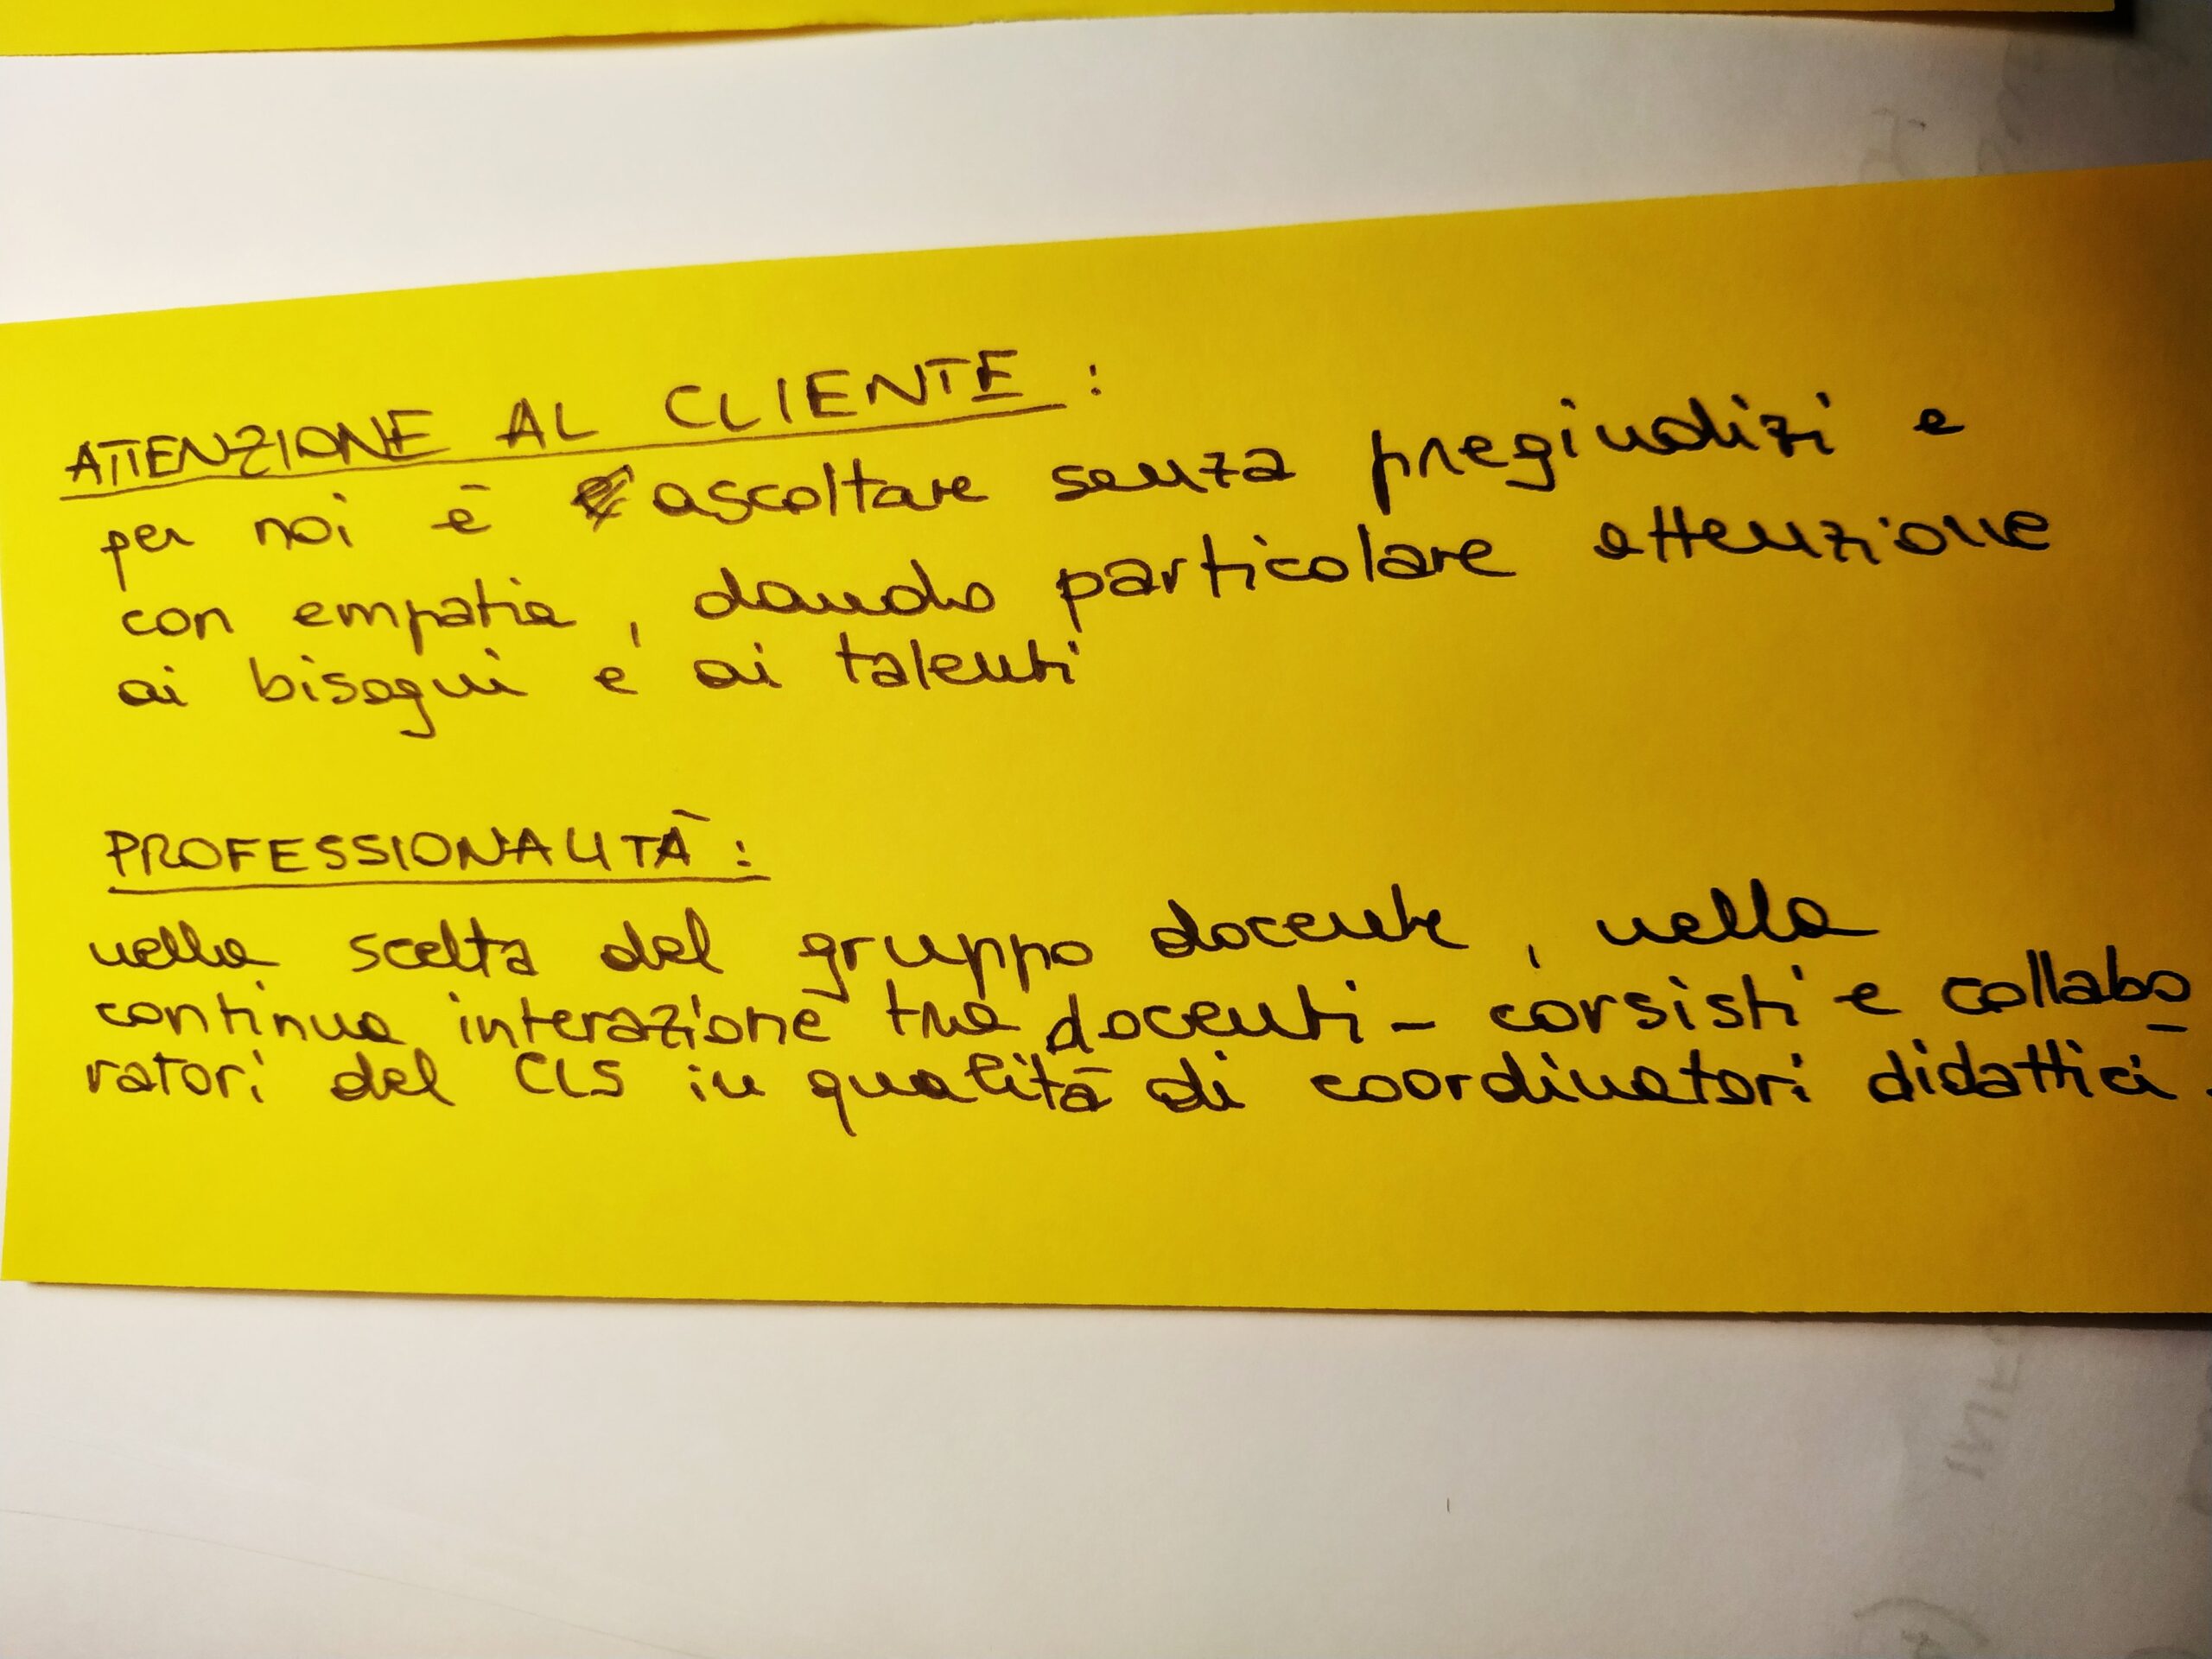 ATTENZIONE AL CLIENTE :
per noi è ascoltare senza pregiudizi e
con empatia, dando particolare attenzione
ai bisogni e ai talenti
PROFESSIONALITÀ :
nella scelta del gruppo docente, nella
continua interazione tra docenti - corsisti e collabo_
ratori del CLS in qualità di coordinatori didattici.